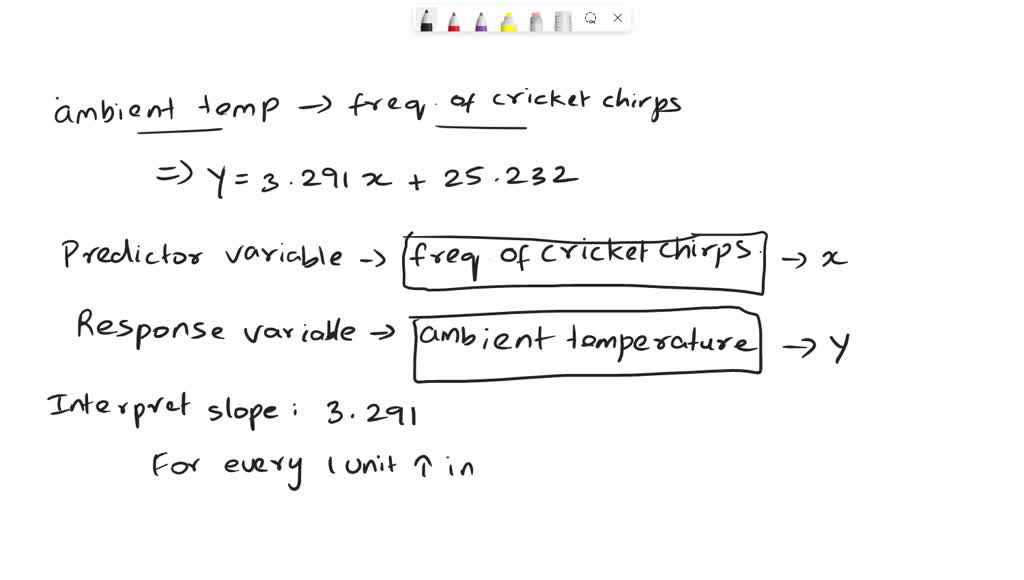 ambient temp → freq. of cricket chirps
⇒ Y = 3.291x + 25.232
Predictor variable → freq of cricket chirps. → x
Response variable → ambient temperature → Y
Interpret slope : 3.291
For every 1 unit ↑ in